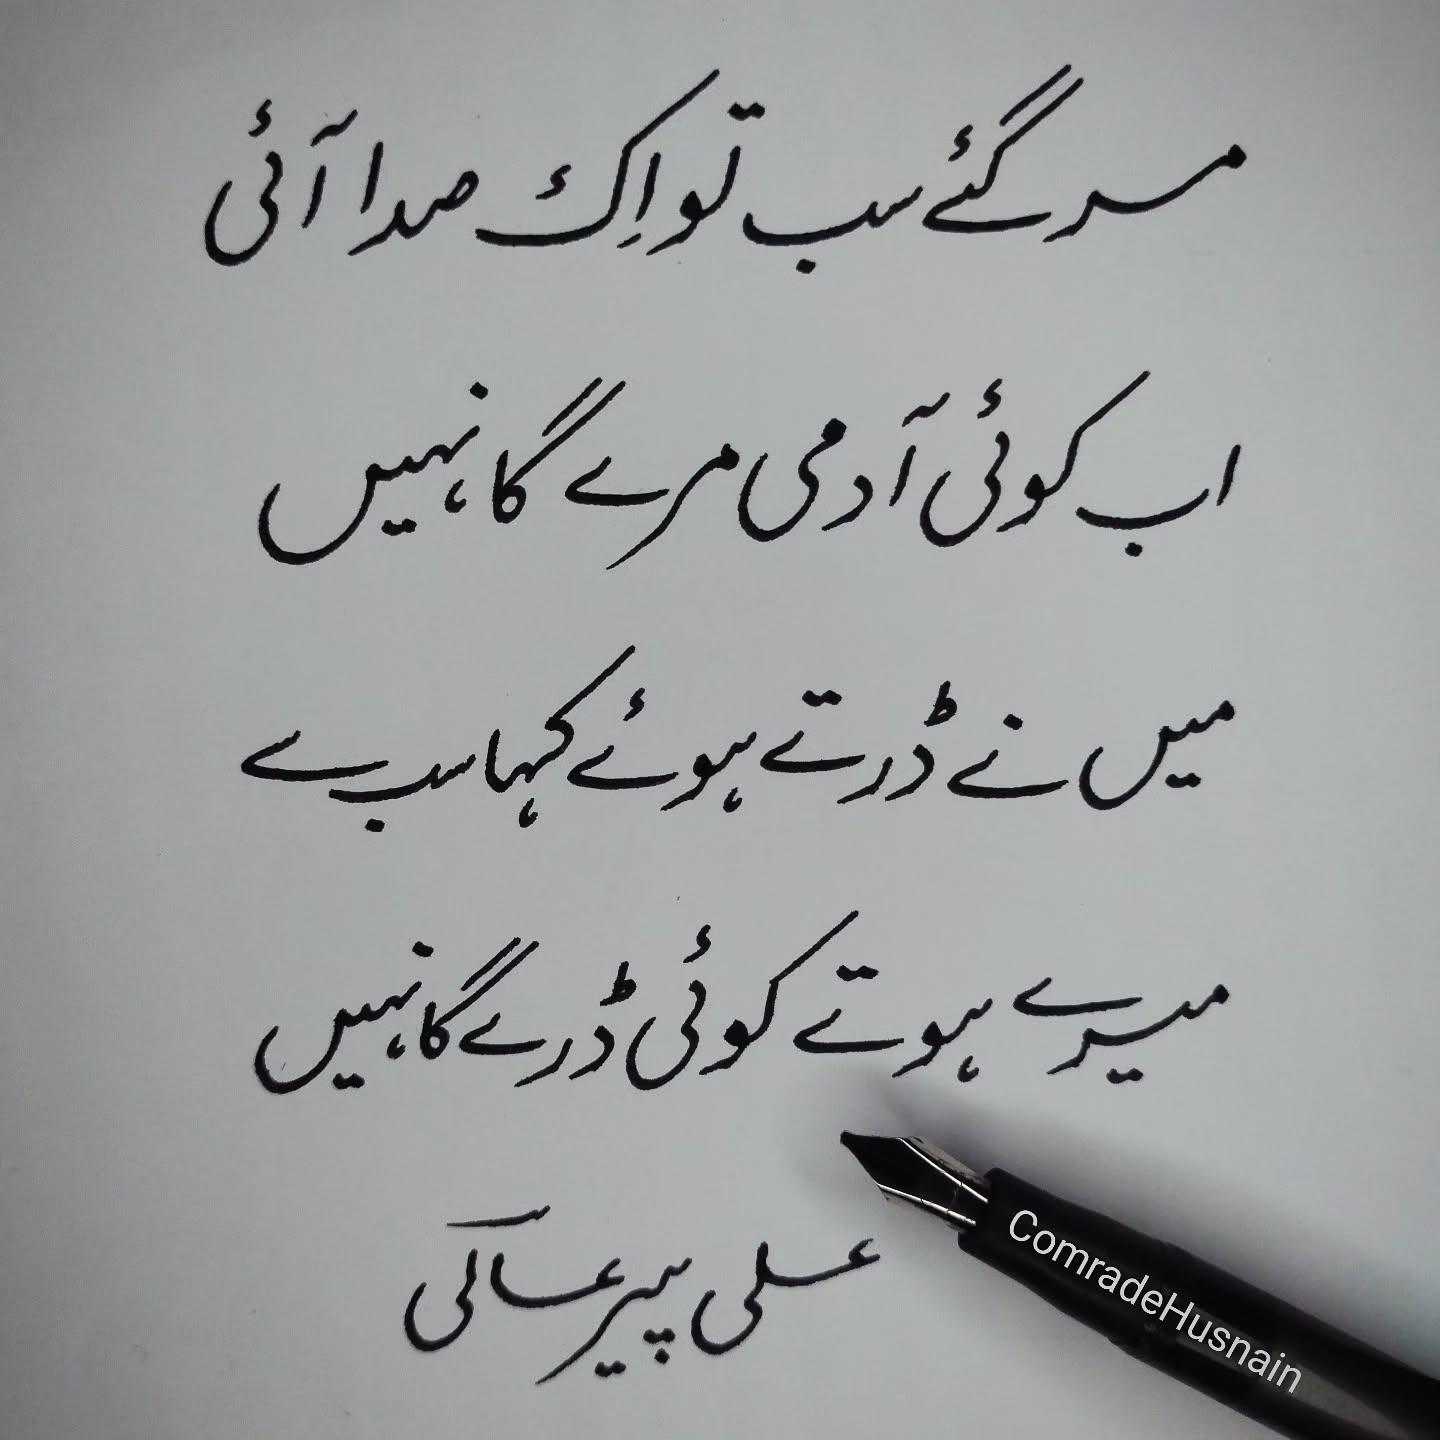 مر گئے سب تو اِک صدا آئی
اب کوئی آدمی مرے گا نہیں
میں نے ڈرتے ہوئے کہا سب سے
میرے ہوتے کوئی ڈرے گا نہیں
علی پیر عالی
ComradeHusnain